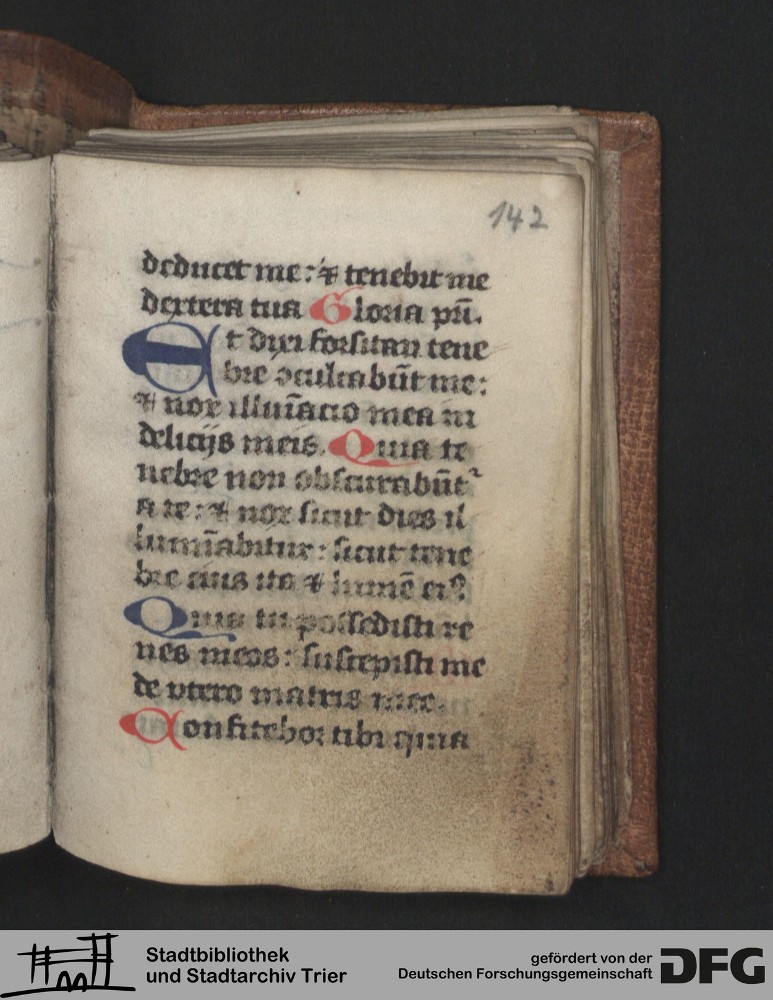 142
deducet me: ⁊ tenebit me
dextera tua Gloria pri̅.
Et dixi forsitan tene
bre ↄculcabūt me:
⁊ nox illuīacio mea in
delicijs meis. Quia te
nebre non obscurabūt᷑
a te: ⁊ nox sicut dies il
lumīabitur: sicut tene
bre eius ita ⁊ lumē eiꝰ.
Quia tu possedisti re
nes meos: suscepisti me
de vtero matris mee.
Confitebor tibi quia
Stadtbibliothek
und Stadtarchiv Trier
gefördert von der
Deutschen Forschungsgemeinschaft
DFG